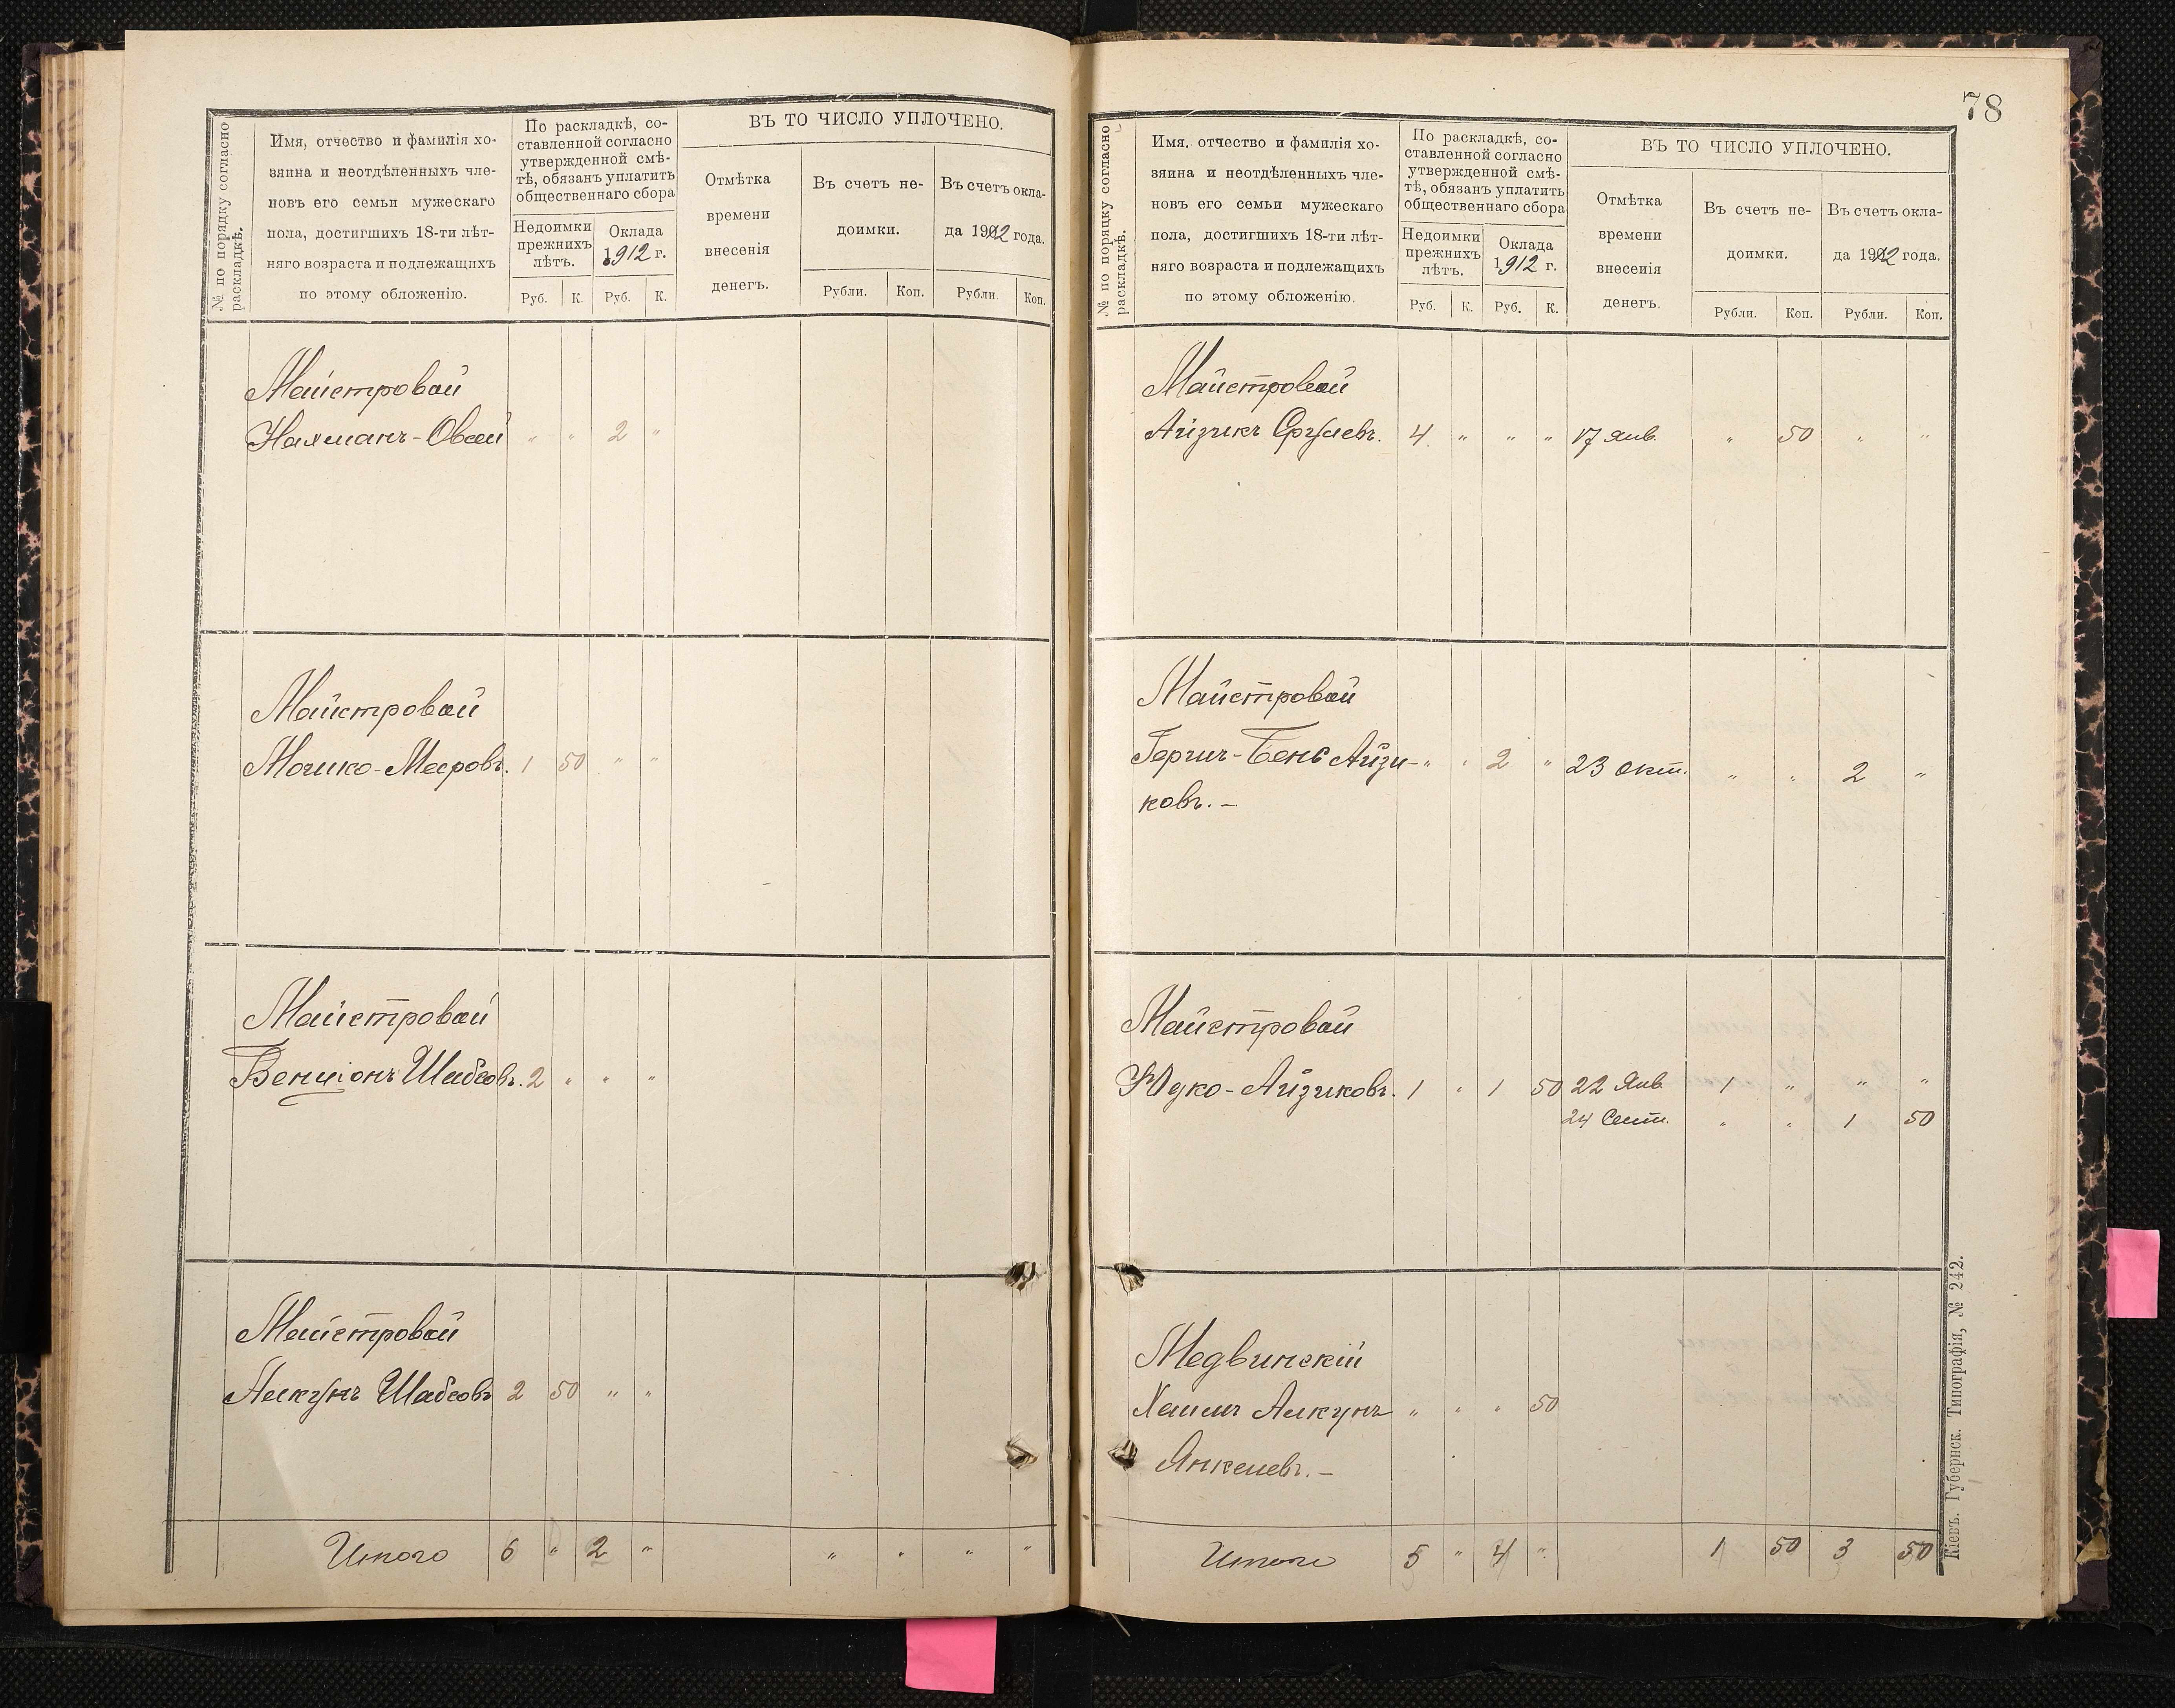 № по порядку согласно
раскладкѣ.
Имя, отчество и фамилія хо-
зяина и неотдѣленныхъ чле-
новъ его семьи мужескаго
пола, достигшихъ 18-ти лѣт-
няго возраста и подлежащихъ
по этому обложенію.
По раскладкѣ, со-
ставленной согласно
утвержденной смѣ-
тѣ, обязанъ уплатить
общественнаго сбора
Недоимки
прежнихъ
лѣтъ.
Оклада
1912 г.
Руб. К. Руб. К.
ВЪ ТО ЧИСЛО УПЛОЧЕНО.
Отмѣтка
времени
внесенія
денегъ.
Въ счетъ не-
доимки.
Въ счетъ окла-
да 1912 года.
Рубли. Коп. Рубли. Коп.
Майстровой
Нахманъ-Овсей " " 2 "
Майстровой
Мошко-Мееровъ. 1 50 " "
Майстровой
Бенціонъ Шабсовъ. 2 " " "
Майстровой
Шабсовъ 2 50 " "
Итого 6 " 2 " " " " "
78
№ по порядку согласно
раскладкѣ.
Имя. отчество и фамилія хо-
зяина и неотдѣленныхъ чле-
новъ его семьи мужескаго
пола, достигшихъ 18-ти лѣт-
няго возраста и подлежащихъ
по этому обложенію.
По раскладкѣ, со-
ставленной согласно
утвержденной смѣ-
тѣ, обязанъ уплатить
общественнаго сбора
Недоимки
прежнихъ
лѣтъ.
Оклада
1912 г.
Руб. К. Руб. К.
ВЪ ТО ЧИСЛО УПЛОЧЕНО.
Отмѣтка
времени
внесенія
денегъ.
Въ счетъ не-
доимки.
Въ счетъ окла-
да 1912 года.
Рубли. Коп. Рубли. Коп.
Майстровой
Айзикъ Срулевъ. 4 " " " 17 Янв. " 50 " "
Майстровой
Гершъ-Бенъ Айзи- " " 2 " 23 Окт. " " 2 "
ковъ. –
Майстровой
Юдко-Айзиковъ. 1 " 1 50 22 Янв. 1 " " "
24 Сент. " " 1 50
Медвинскій
Хаимъ " " " 50
Янкелевъ. –
Итого 5 " 4 " 1 50 3 50
Кіевъ. Губернск. Типографія, № 242.